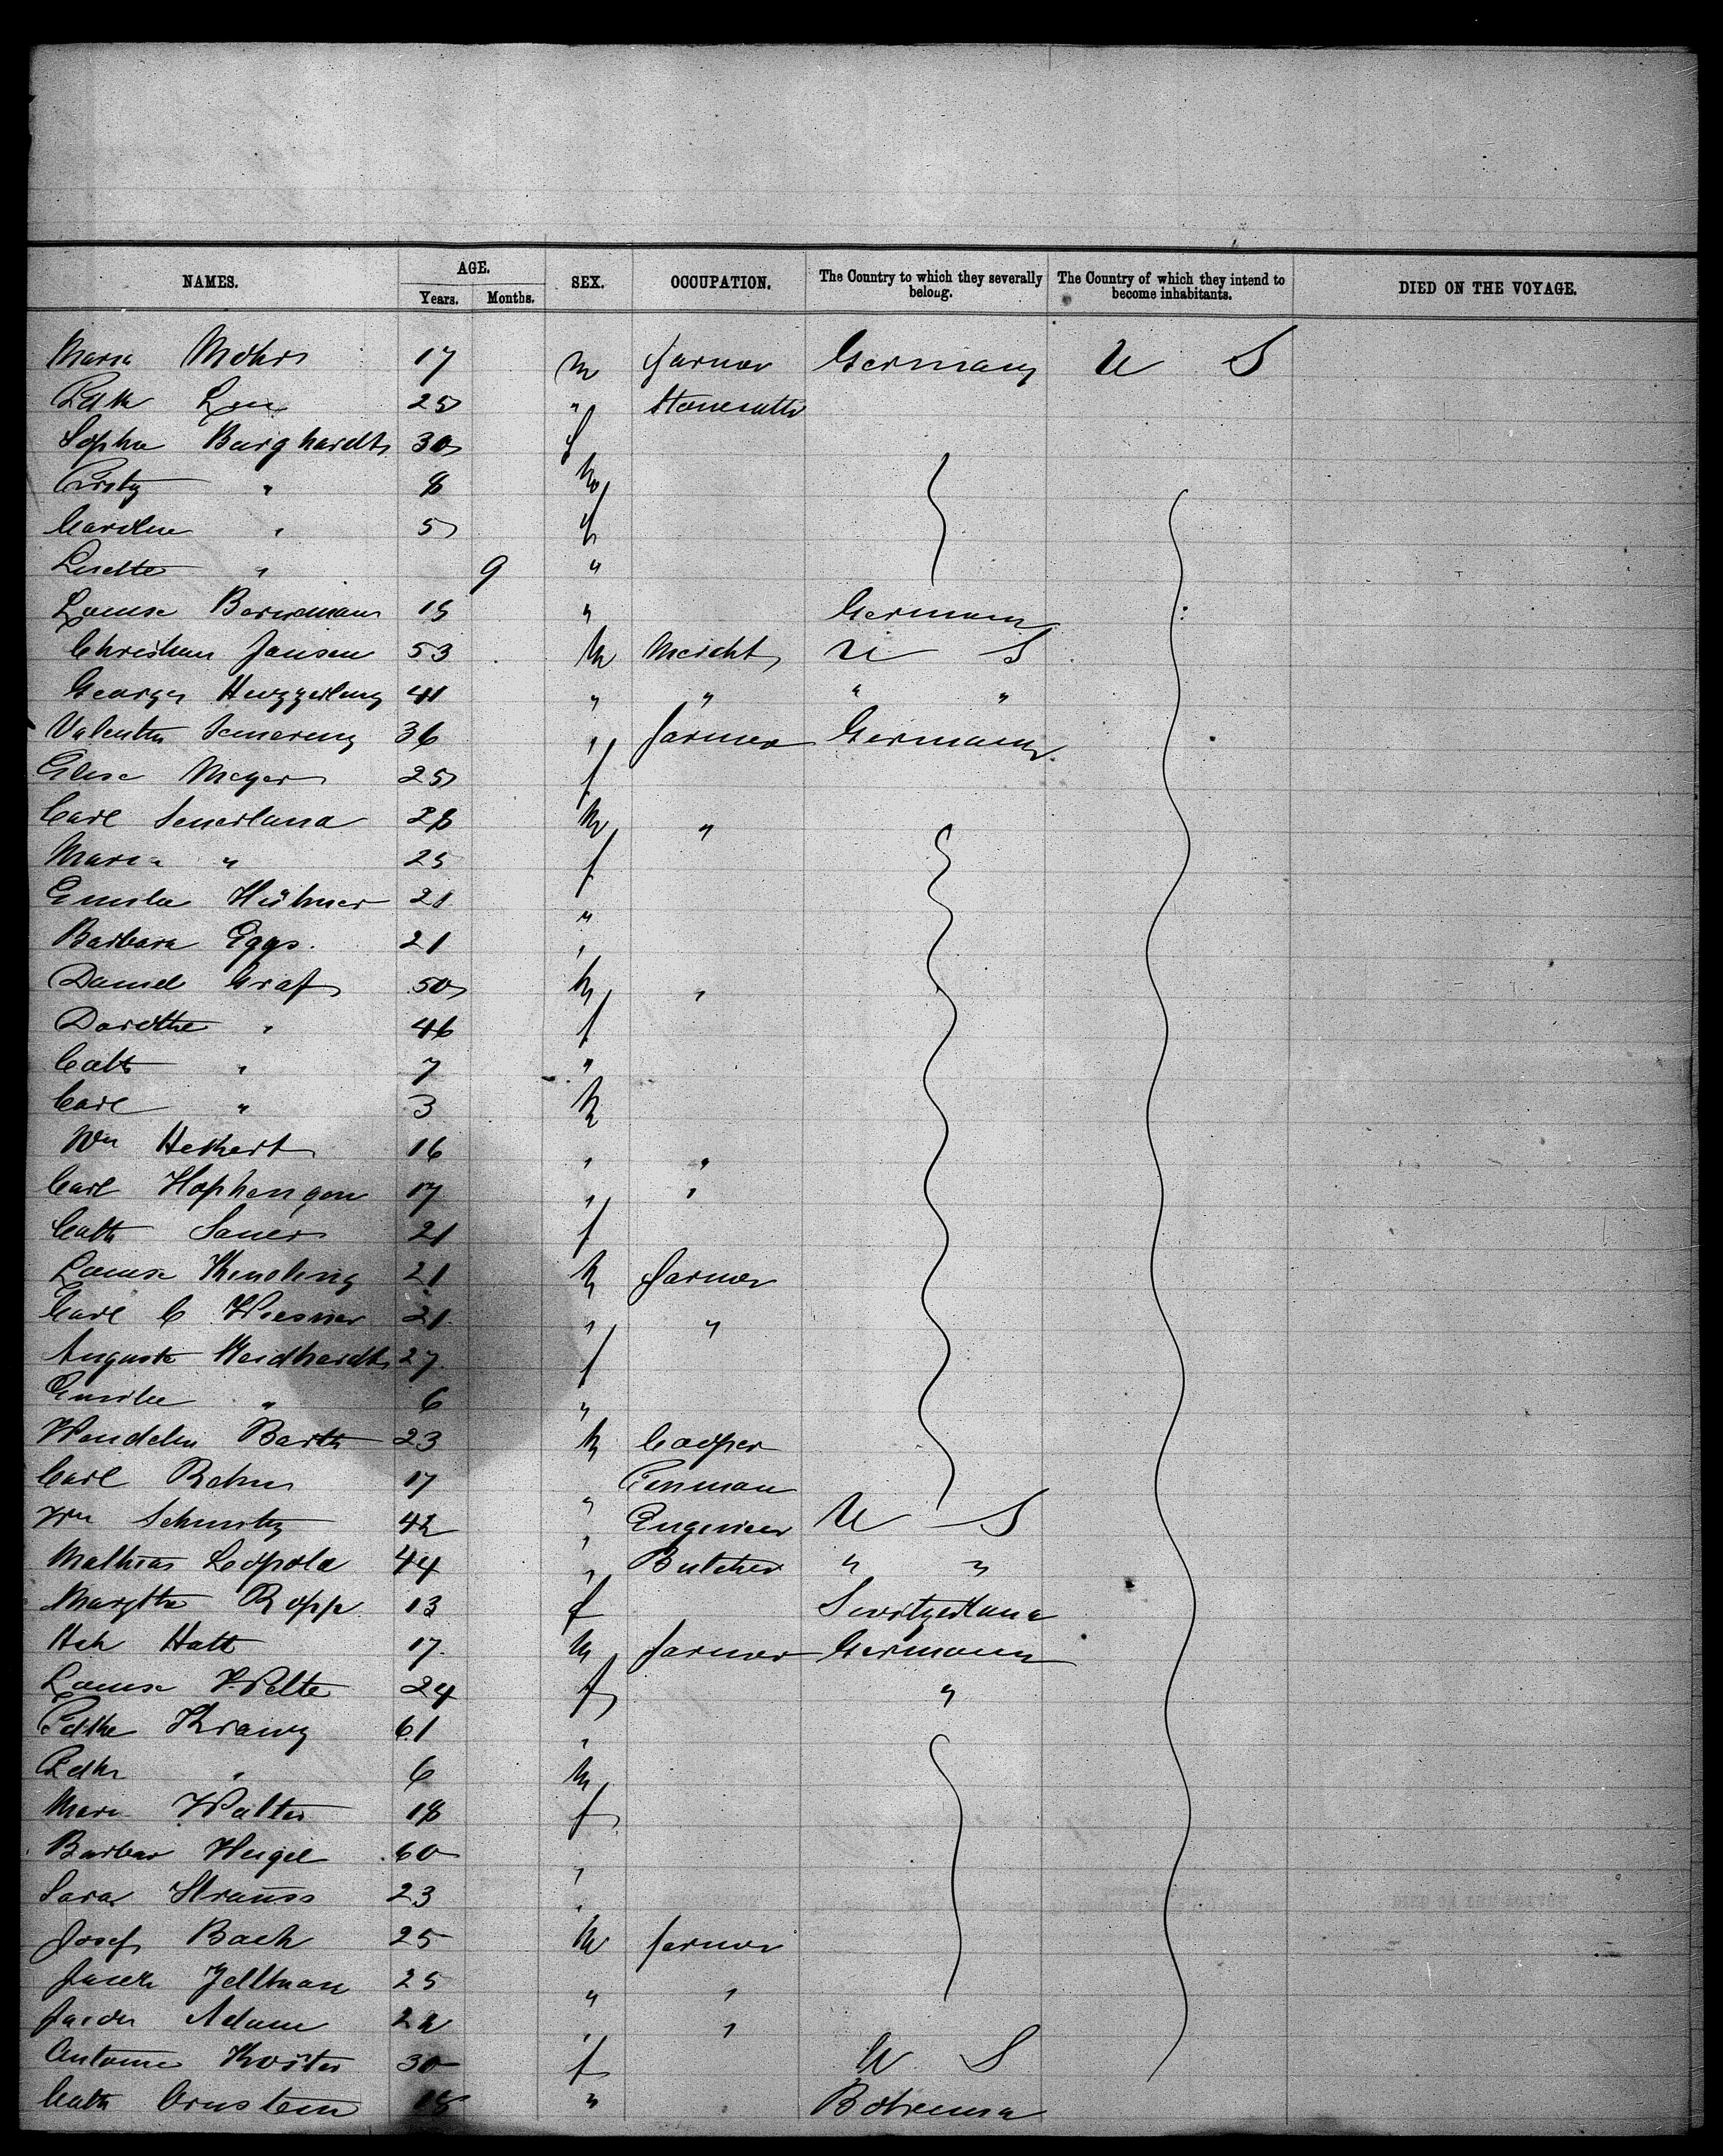 NAMES. AGE. SEX. OCCUPATION. The Country to which they severally belong. The Country of which they intend to become inhabitants. DIED ON THE VOYAGE.
Years. Months.
Maria Mohrs 17 m farmer Germany U S
25 " Stonecutter
Sophie Burghardt 30 f
" 8 m
Caroline " 5 f
Lisette " 9 "
Louise 15 " Germany
Christian Jansen 53 m Mercht U S
George 41 " " " "
Valentin 36 " farmer Germany
Elise Meyer 25 f
Carl 28 m "
Maria " 25 f
Emilie Hübner 21 "
Barbara Eggs. 21 "
Daniel Graf 50 m "
Dorothe " 46 f
Cath " 7 "
Carl " 3 m
Wm 16 " "
Carl 17 " "
Cath Sauer 21 f
Louise 21 m farmer
Carl C Wiesner 21 " "
Auguste Weidhardt 27 f
Emilie " 6 "
Wendelin Barth 23 m Cooper
Carl Rehm 17 " Penman
Wm 42 " Engineer U S
Mathias Leopold 44 " Butcher " "
Margthe Ropp 13 f Switzerland
Hch Hatt 17 m farmer Germany
Louise Welte 24 f "
61 "
" 6 m
Marie Walter 18 f
Barbar Heigel 60 "
Sara Strauss 23 "
Josef Bach 25 m farmer
25 " "
Jacob Adam 22 " "
Antonie Koster 30 f U S
Cath Ornstein 18 " Bohemia